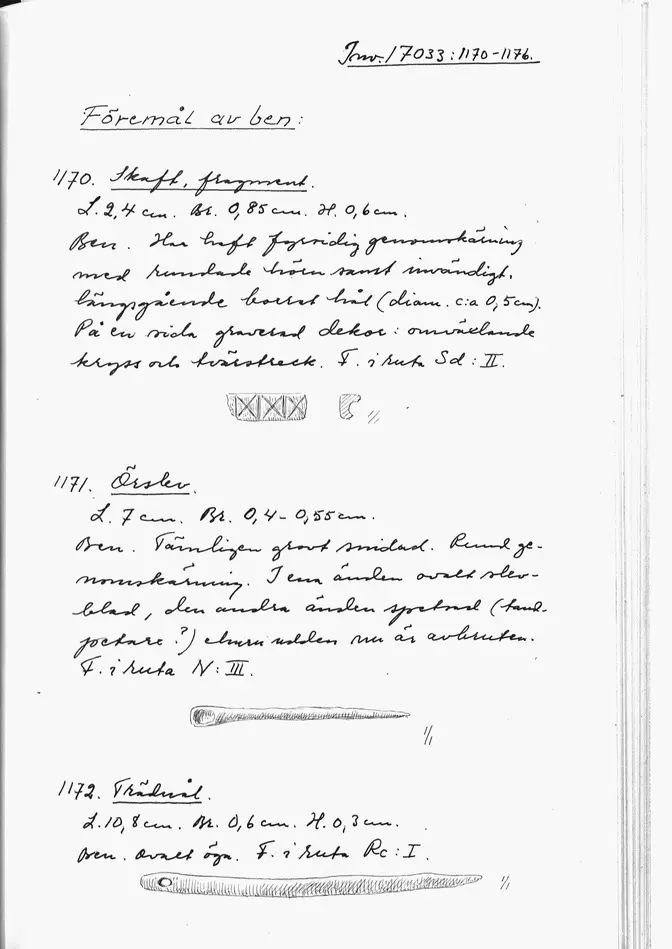 Inv. 17033:1170-1176.
Föremål av ben:
1170. Skaft, fragment.
L. 2,4 cm. Br. 0,85 cm. H. 0,6 cm.
Ben. Har haft fyrsidig genomskärning
med rundade hörn samt invändigt,
längsgående borrat hål (diam. c:a 0,5 cm).
På en sida graverad dekor: omväxlande
kryss och tvärstreck. F. i ruta Sd: II.
1/1
1171. Örslev.
L. 7 cm. Br. 0,4-0,55 cm.
Ben. Tämligen grovt snidad. Rund ge-
nomskärning. I ena änden ovalt slev-
blad, den andra änden spetsad (tand-
petare?) ehuru udden nu är avbruten.
F. i ruta N: III.
1/1
1172. Trädnål.
L. 10,8 cm. Br. 0,6 cm. H. 0,3 cm.
Ben. Ovalt öga. F. i ruta Rc: I.
1/1